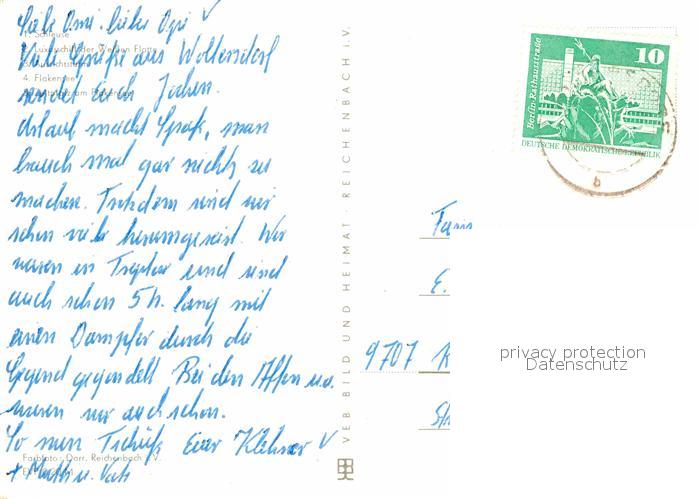 Liebe Omi, lieber Opi
1. Schleuse
2. Luxusschiff der Weißen Flotte
Viele Grüße aus Woltersdorf
4. Flakensee
sendet Euch Jochen.
Urlaub macht Spaß, man
brauch mal gar nichts zu
machen. Trotzdem sind wir
schon viel herumgereist. Wir
waren in Treptow und sind
auch schon 5 h. lang mit
einen Dampfer durch die
Gegend gegondelt. Bei den Affen u.a.
waren wir auch schon.
So nun Tschüß Euer
Farbfoto: Darr, Reichenbach i. V.
+ Mutti u. Vati
VEB BILD UND HEIMAT · REICHENBACH i. V.
10
Berlin-Rathausstraße
DEUTSCHE DEMOKRATISCHE REPUBLIK
b
Fam
E.
9707 K
privacy protection
Datenschutz